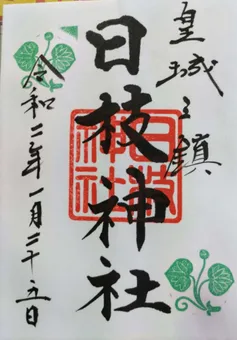 皇城之鎮
日枝神社
令和二年一月二十五日
日枝神社